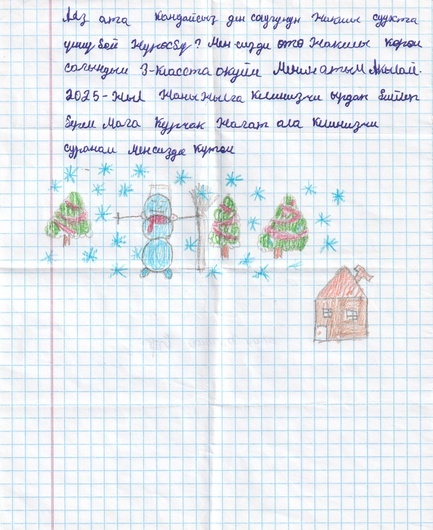 Аяз ата Кандайсыз ден соугунуз Жакшы суукта
үшүбөй жүрөсүзбү? Мен сизди өтө жакшы көрөм
сагындым 3-класста окуйм Менин атым Акылай.
2025-жыл Жаны жылга келишизчи ырдап бийлеп
берем Мага Куурчак жагат ала келиңизчи
суранам мен сизди күтөм